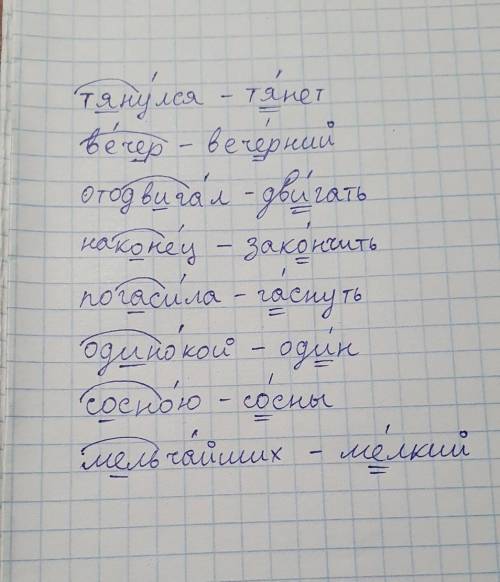 тяну́лся - тя́нет
ве́чер - вече́рний
отодвига́л - дви́гать
наконе́ц - зако́нчить
погаси́ла - га́снуть
одино́кой - оди́н
сосно́ю - со́сны
мельча́йших - ме́лкий